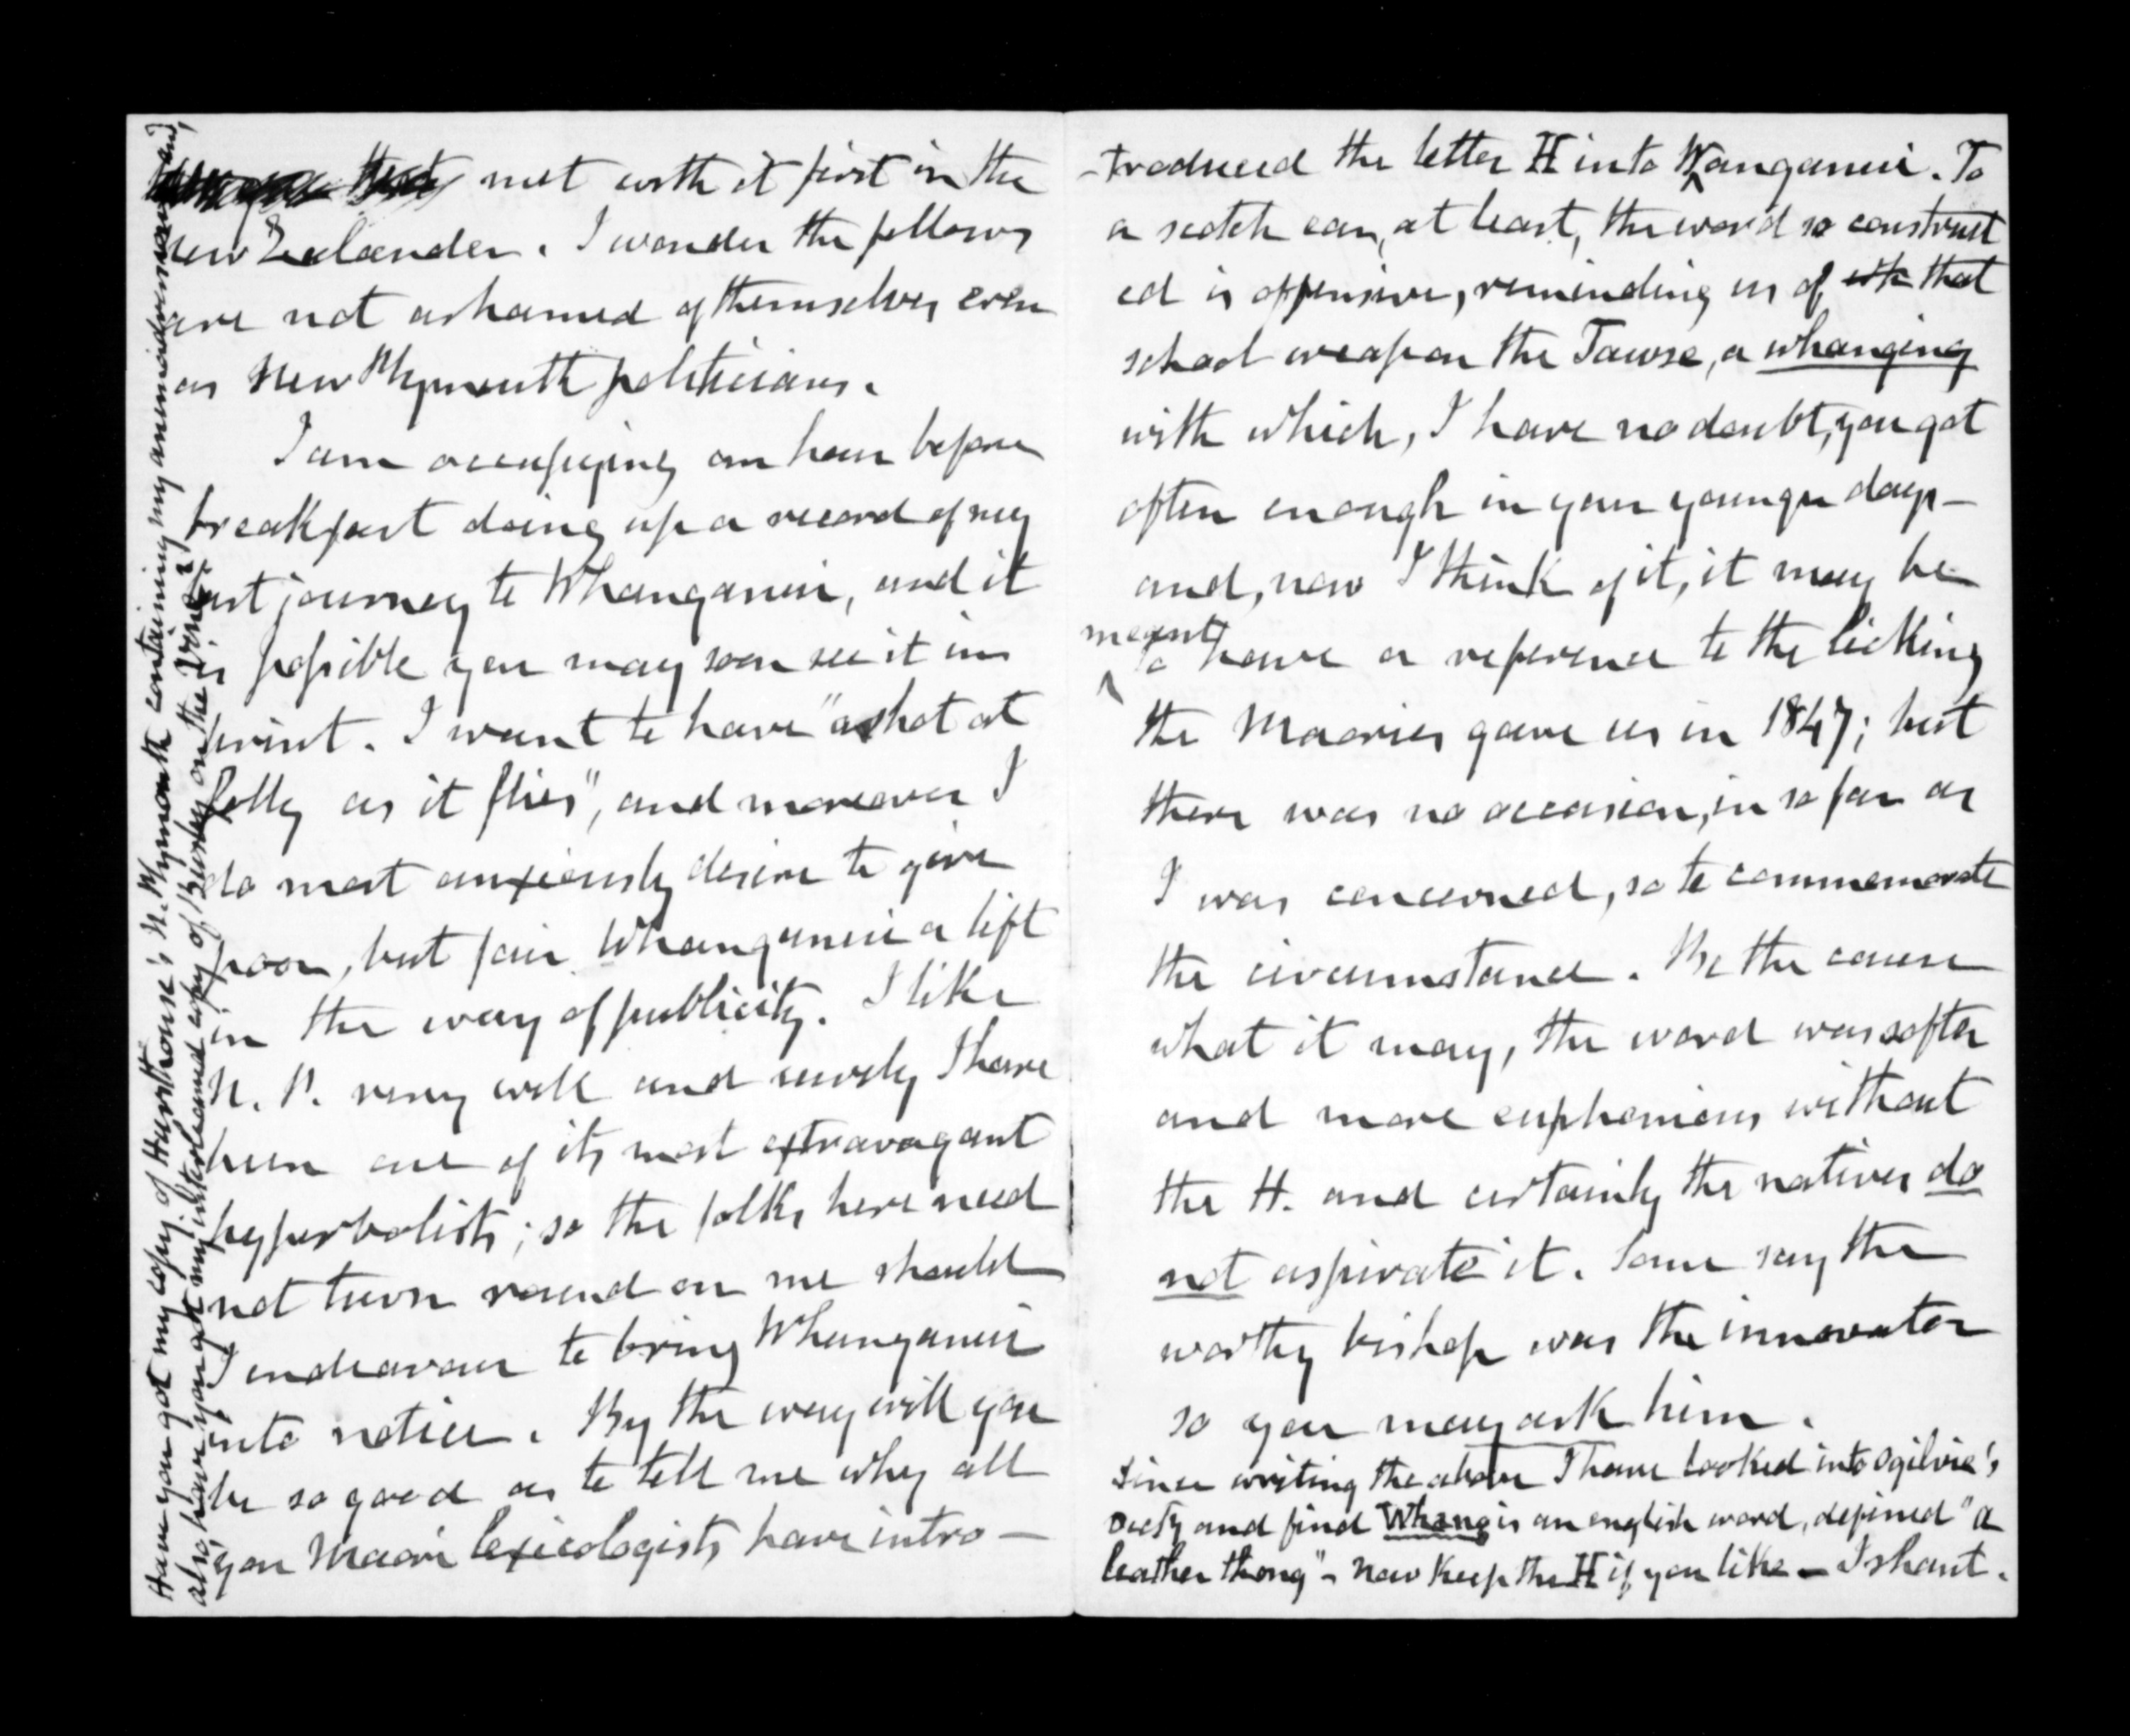 met with it first in the
New Zealander. I wonder the fellows
are not ashamed of themselves even
as New Plymouth politicians.
I am occupying an hour before
breakfast doing up a record of my
last journey to Whanganui, and it
is possible you may soon see it in
print. I want to have "a shot at
folly as it flies", and moreover I
do most anxiously desire to give
poor, but fair Whanganui a lift
in the way of publicity. I like
N. P. very well and surely I have
been one of its most extravagant
hyperbolists; so the folks here need
not turn round on me should
I endeavour to bring Whanganui
into notice. By the way will you
be so good as to tell me why all
you Maori lexicologists have intro-
Have you got my copy of Hursthouse's N. Plymouth containing my animadversions and,
also have you got my interleaved copy of Busby on the Vine?
-troduced the letter H into Wanganui. To
a scotch ear, at least, the word so construct
ed is offensive, reminding us of that
school weapon the Tawse, a whanging
with which, I have no doubt, you got
often enough in your younger days -
and, now I think of it, it may be
meant
to have a reference to the licking
the Maories gave us in 1847; but
there was no occasion, in so far as
I was concerned, so to commemorate
the circumstance. Be the cause
what it may, the word was softer
and more euphonious without
the H. and certainly the natives do
not aspirate it. Some say the
worthy bishop was the innovator
so you may ask him.
Since writing the above I have looked into Ogilvie's
Dicty and find Whang is an english word, defined "a
leather thong" - Now keep the H if you like - I shant.